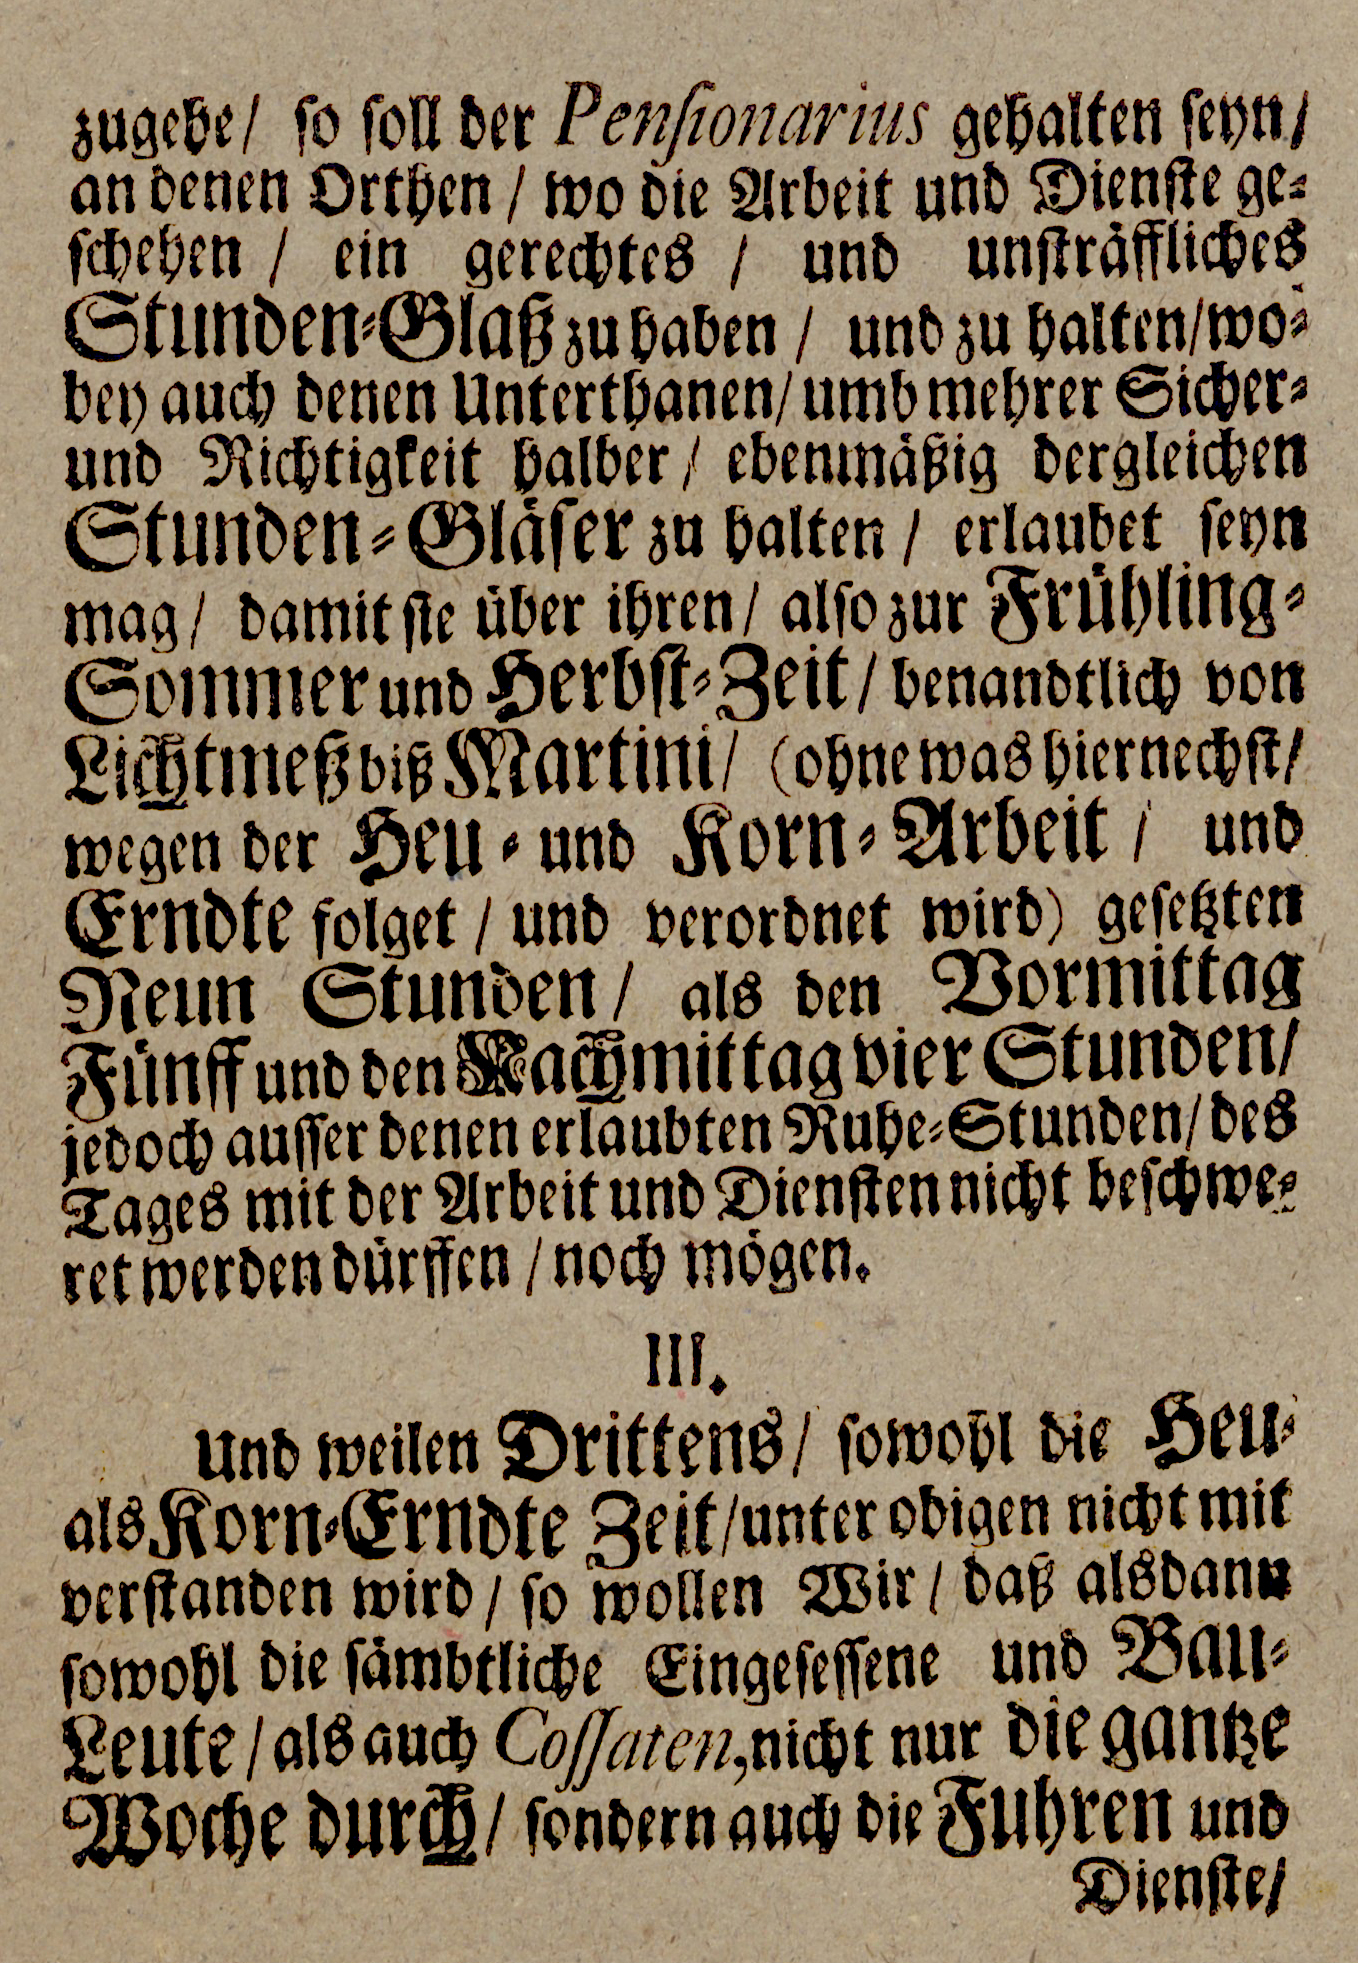 zugehe/ so soll der Pensionarius gehalten seyn/
an denen Orthen / wo die Arbeit und Dienste ge-
schehen / ein gerechtes / und unsträffliches
Stunden-Glaß zu haben / und zu halten/ wo-
bey auch denen Unterthanen/ umb mehrer Sicher-
und Richtigkeit halber / ebenmäßig dergleichen
Stunden-Gläser zu halten / erlaubet seyn
mag / damit sie über ihren / also zur Frühling-
Sommer und Herbst-Zeit / benandtlich von
Lichtmeß biß Martini/ (ohne was hiernechst/
wegen der Heu- und Korn-Arbeit / und
Erndte folget / und verordnet wird) gesetzten
Neun Stunden / als den Vormittag
Fünff und den Nachmittag vier Stunden/
jedoch ausser denen erlaubten Ruhe-Stunden/ des
Tages mit der Arbeit und Diensten nicht beschwe-
ret werden dürffen / noch mögen.
III.
Und weilen Drittens/ sowohl die Heu-
als Korn-Erndte Zeit/ unter obigen nicht mit
verstanden wird / so wollen Wir / daß alsdann
sowohl die sämbtliche Eingesessene und Bau-
Leute / als auch Cossaten, nicht nur die gantze
Woche durch / sondern auch die Fuhren und
Dienste/